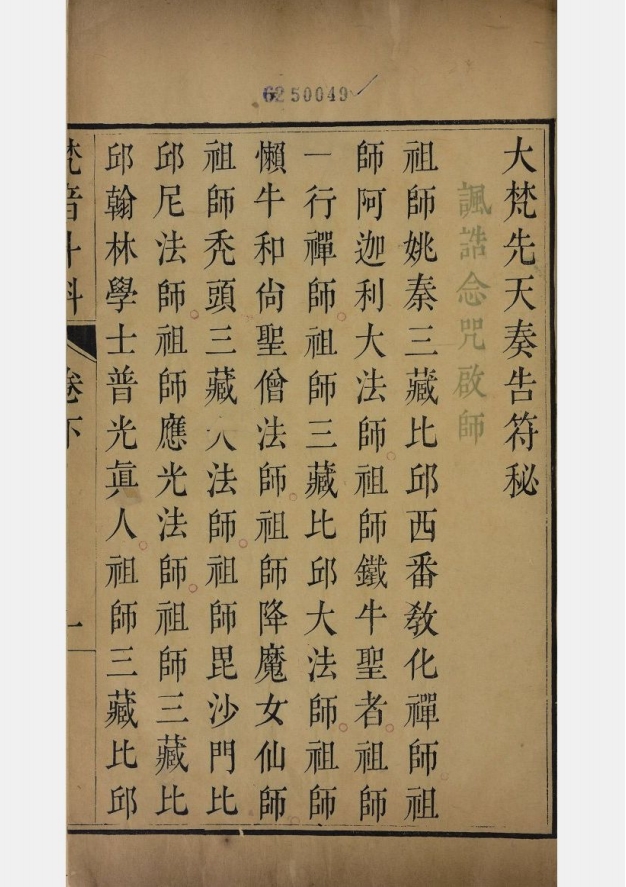 6250049
大梵先天奏告符秘
諷誥念咒啟師
祖師姚秦三藏比邱西番教化禪師祖
師阿迦利大法師祖師鐵牛聖者祖師
一行禪師祖師三藏比邱大法師祖師
懶牛和尚聖僧法師祖師降魔女仙師
祖師禿頭三藏大法師祖師毘沙門比
邱尼法師祖師應光法師祖師三藏比
邱翰林學士普光眞人祖師三藏比邱
梵音斗科 卷下 一